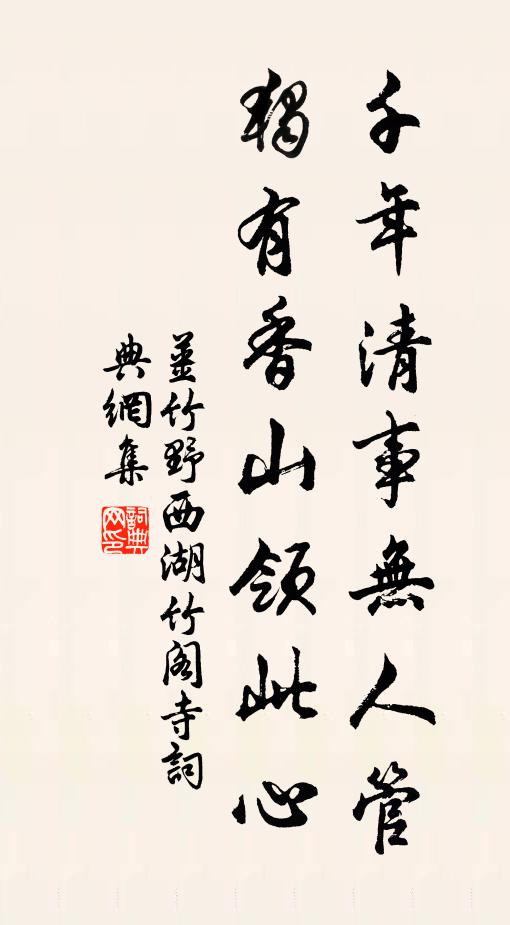 千年清事無人管
獨有香山領此心
薑竹野西湖竹閣寺詞
典網集
詞典
网印